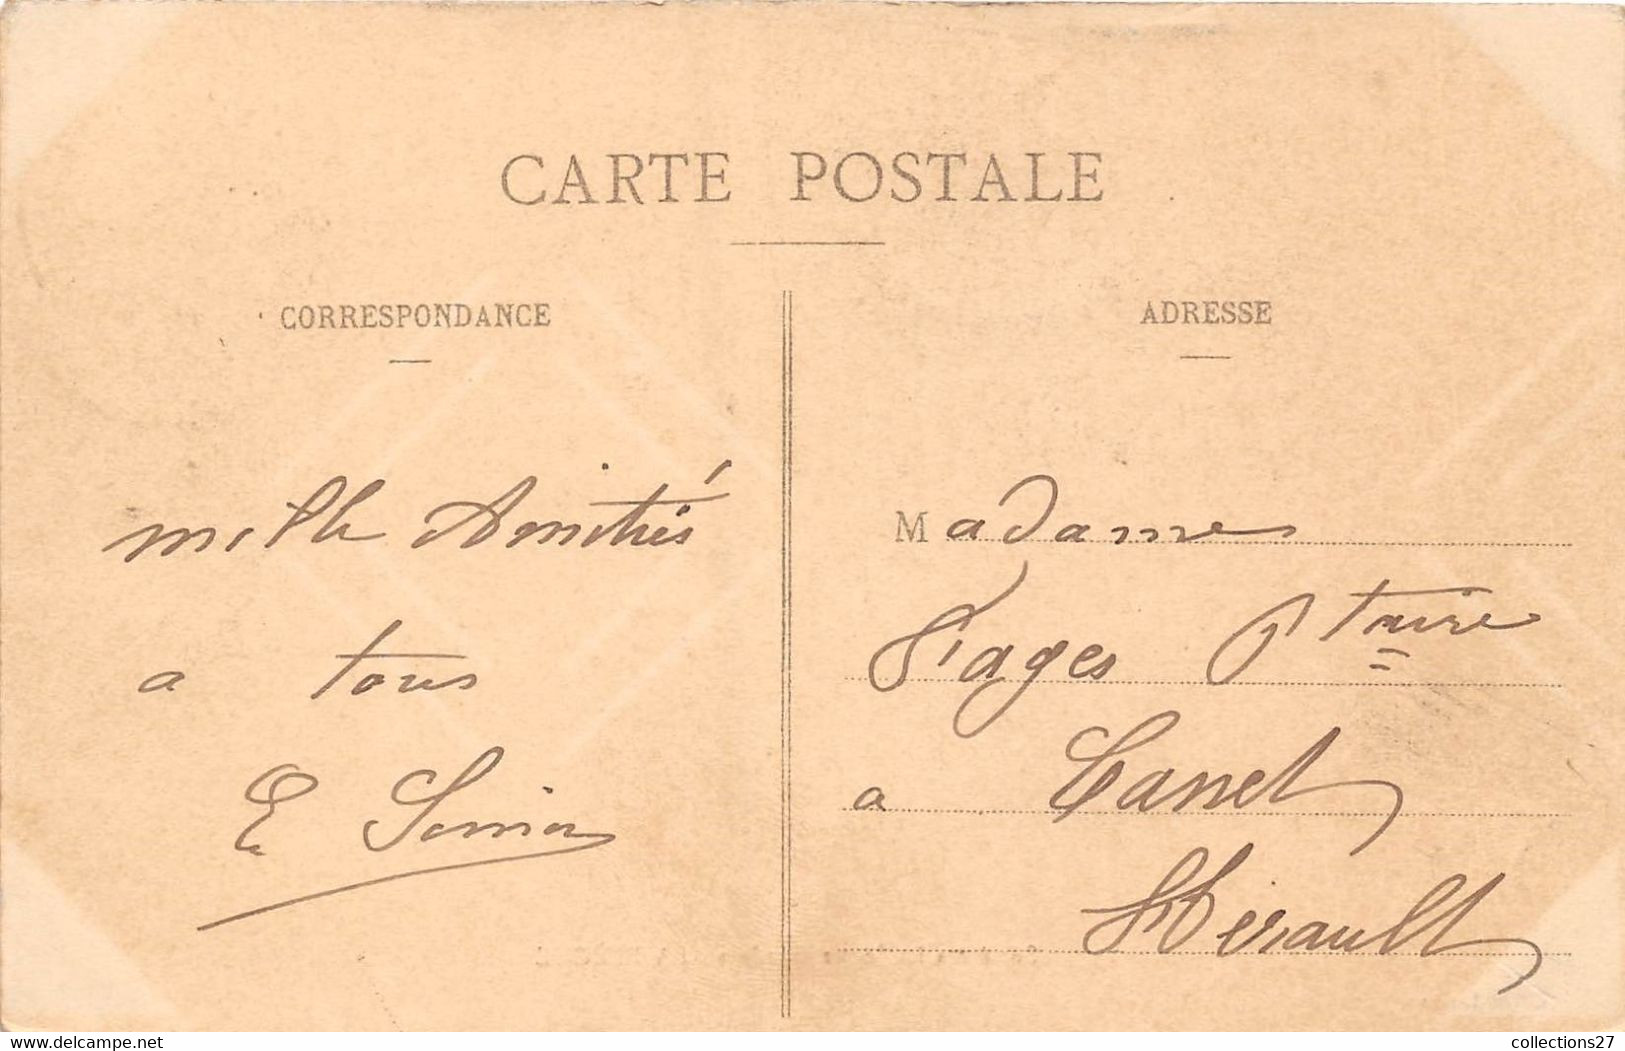 CARTE POSTALE
CORRESPONDANCE
mille Amitiés
a tous
E
ADRESSE
Madame
Fages Ptaire
a Canet
Hérault
www.delcampe.net
collections27